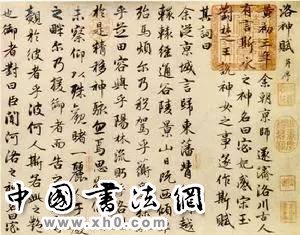 洛神賦 并序
黃初三年余朝京師還濟洛川古人
有言斯水之神名曰宓妃感宋玉
對楚王說神女之事遂作斯賦
其詞曰
余從京域言歸東藩背越
轘轅經通谷陵景山日既西傾
殆馬煩爾乃稅駕乎蘅
乎芝田容與乎陽林流眄
於是精移神駭忽焉思
未察仰以殊觀覩
之畔爾乃援御者而告之
覿於彼者乎彼何人斯若此之艷
也御者對曰臣聞河洛之神名曰宓
中國書法網
www.xh0.com